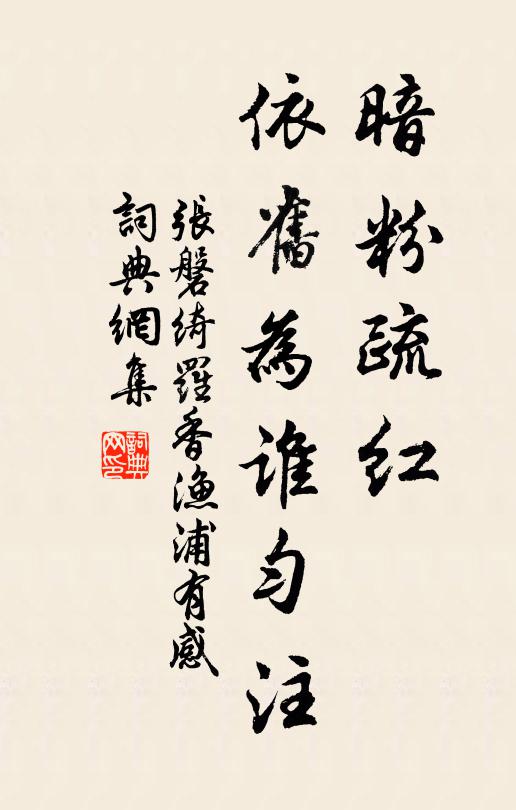 暗粉疏红
依舊為誰勻注
張磐綺羅香漁浦有感
詞典網集
詞典网印